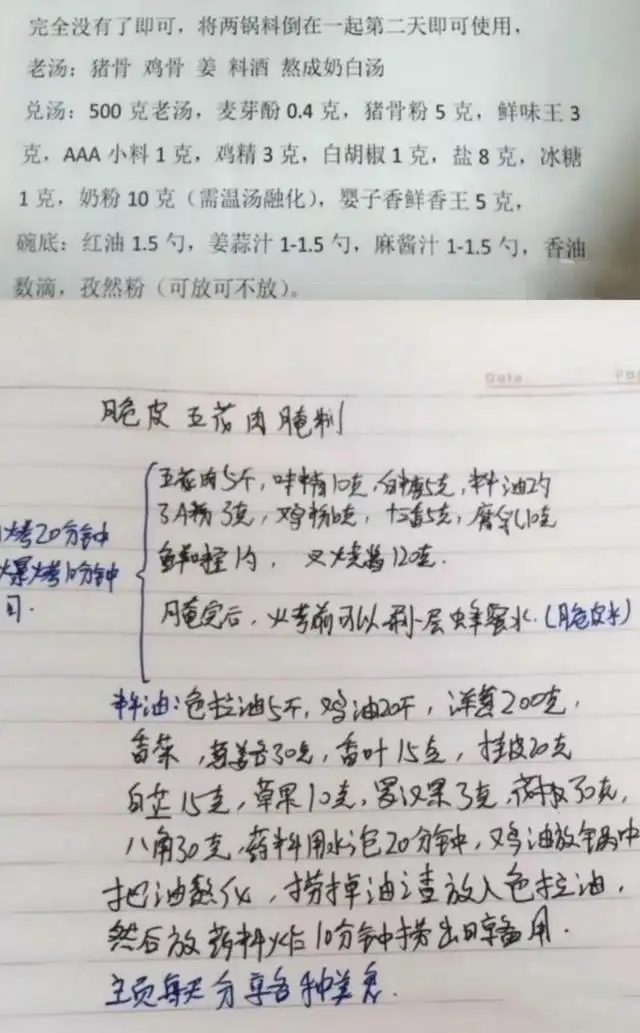 完全没有了即可，将两锅料倒在一起第二天即可使用，
老汤：猪骨 鸡骨 姜 料酒 熬成奶白汤
兑汤：500 克老汤，麦芽酚 0.4 克，猪骨粉 5 克，鲜味王 3
克，AAA 小料 1 克，鸡精 3 克，白胡椒 1 克，盐 8 克，冰糖
1 克，奶粉 10 克（需温汤融化），婴子香鲜香王 5 克，
碗底：红油 1.5 勺，姜蒜汁 1-1.5 勺，麻酱汁 1-1.5 勺，香油
数滴，孜然粉（可放可不放）。
Date
脆皮 五花肉腌制
五花肉5斤，味精10克，白糖5克，料油2勺
3克，鸡粉6克，十三香5克，腐乳10克
鲜味宝1勺，叉烧酱120克.
腌完后，火考前可以刷一层蜂蜜水.(脆皮水)
火考20分钟
爆烤10分钟
料油：色拉油5斤，鸡油20斤，洋葱200克，
香菜，葱姜各30克，香叶15克，桂皮20克
白芷15克，草果10克，罗汉果3克，30克，
八角30克，药料用水泡20分钟，鸡油放锅中
把油熬化，捞掉油渣放入色拉油，
然后放药料火炸10分钟捞出晾备用.
主页每天分享各种美食.